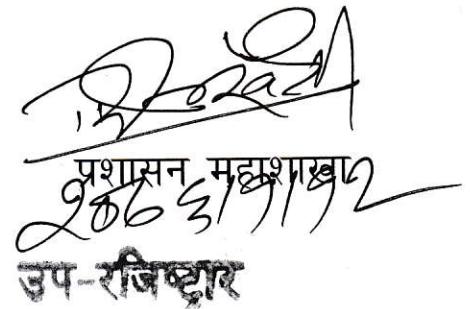 प्रशासन महाशाखा
२०७६/१/१२
उप-रजिष्ट्रार